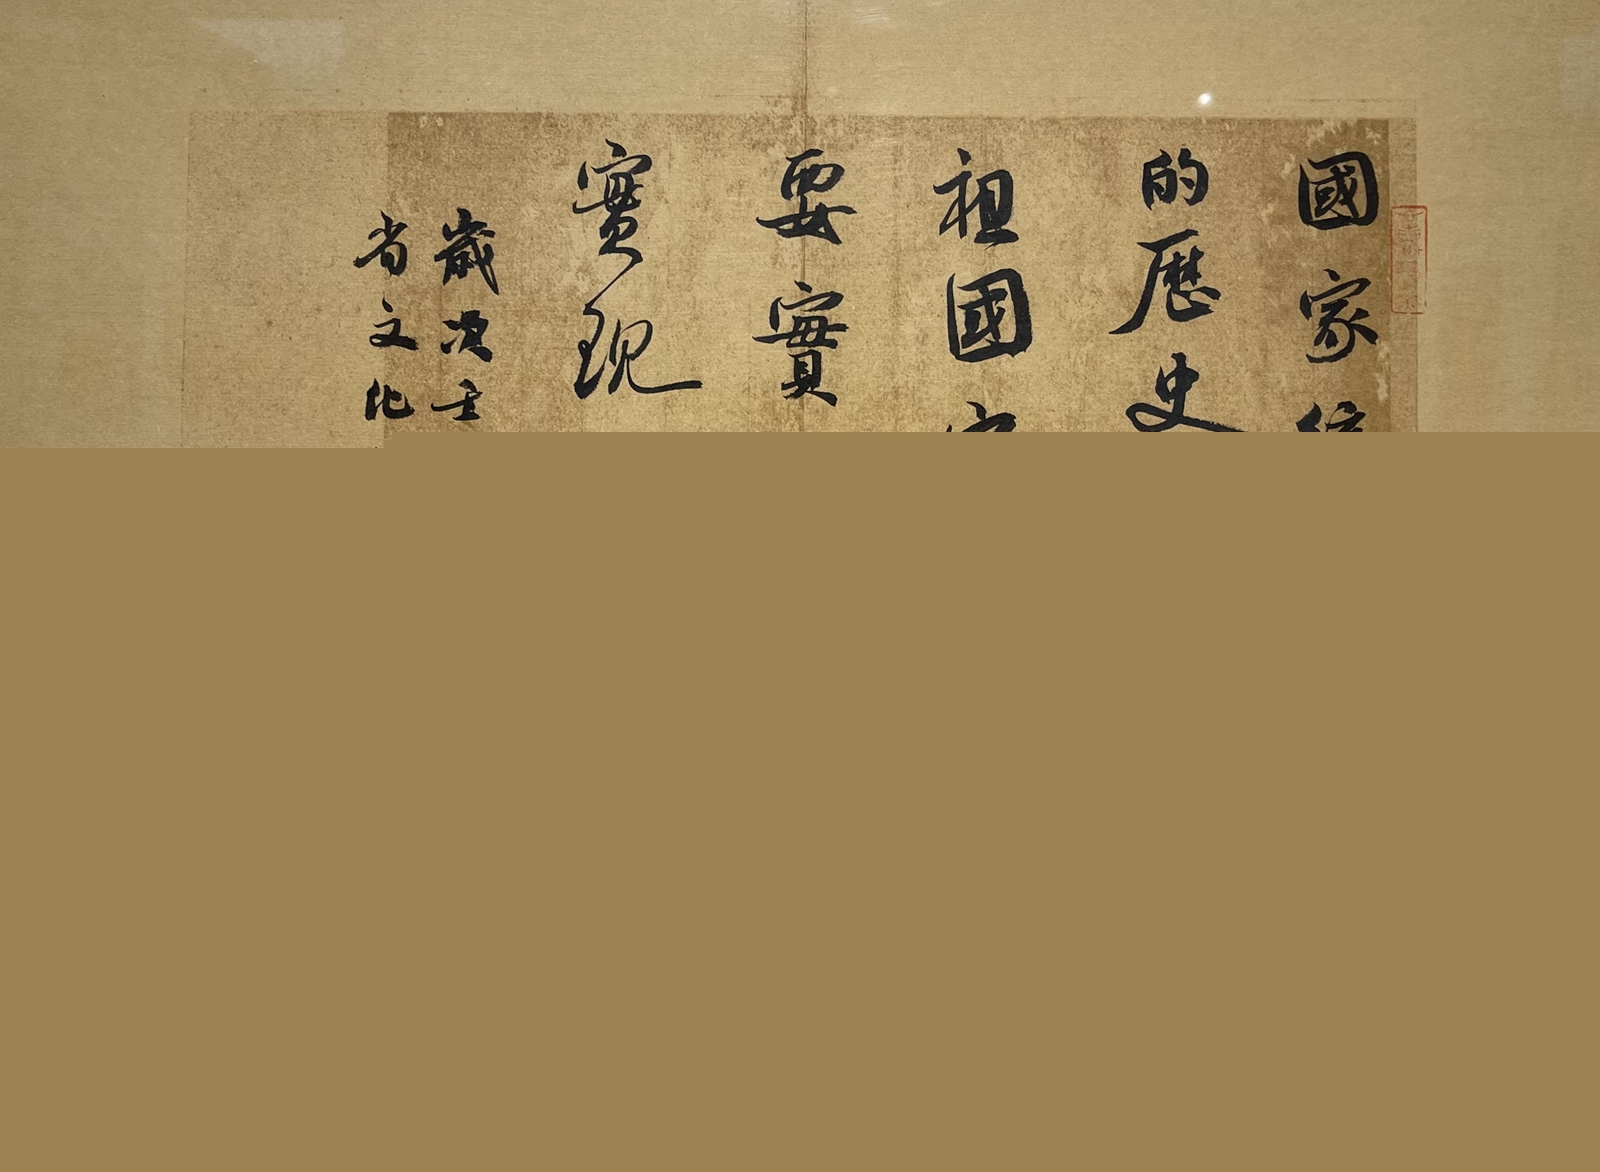 國家統
的歷史
祖國完
要實
實現
歲次壬
省文化